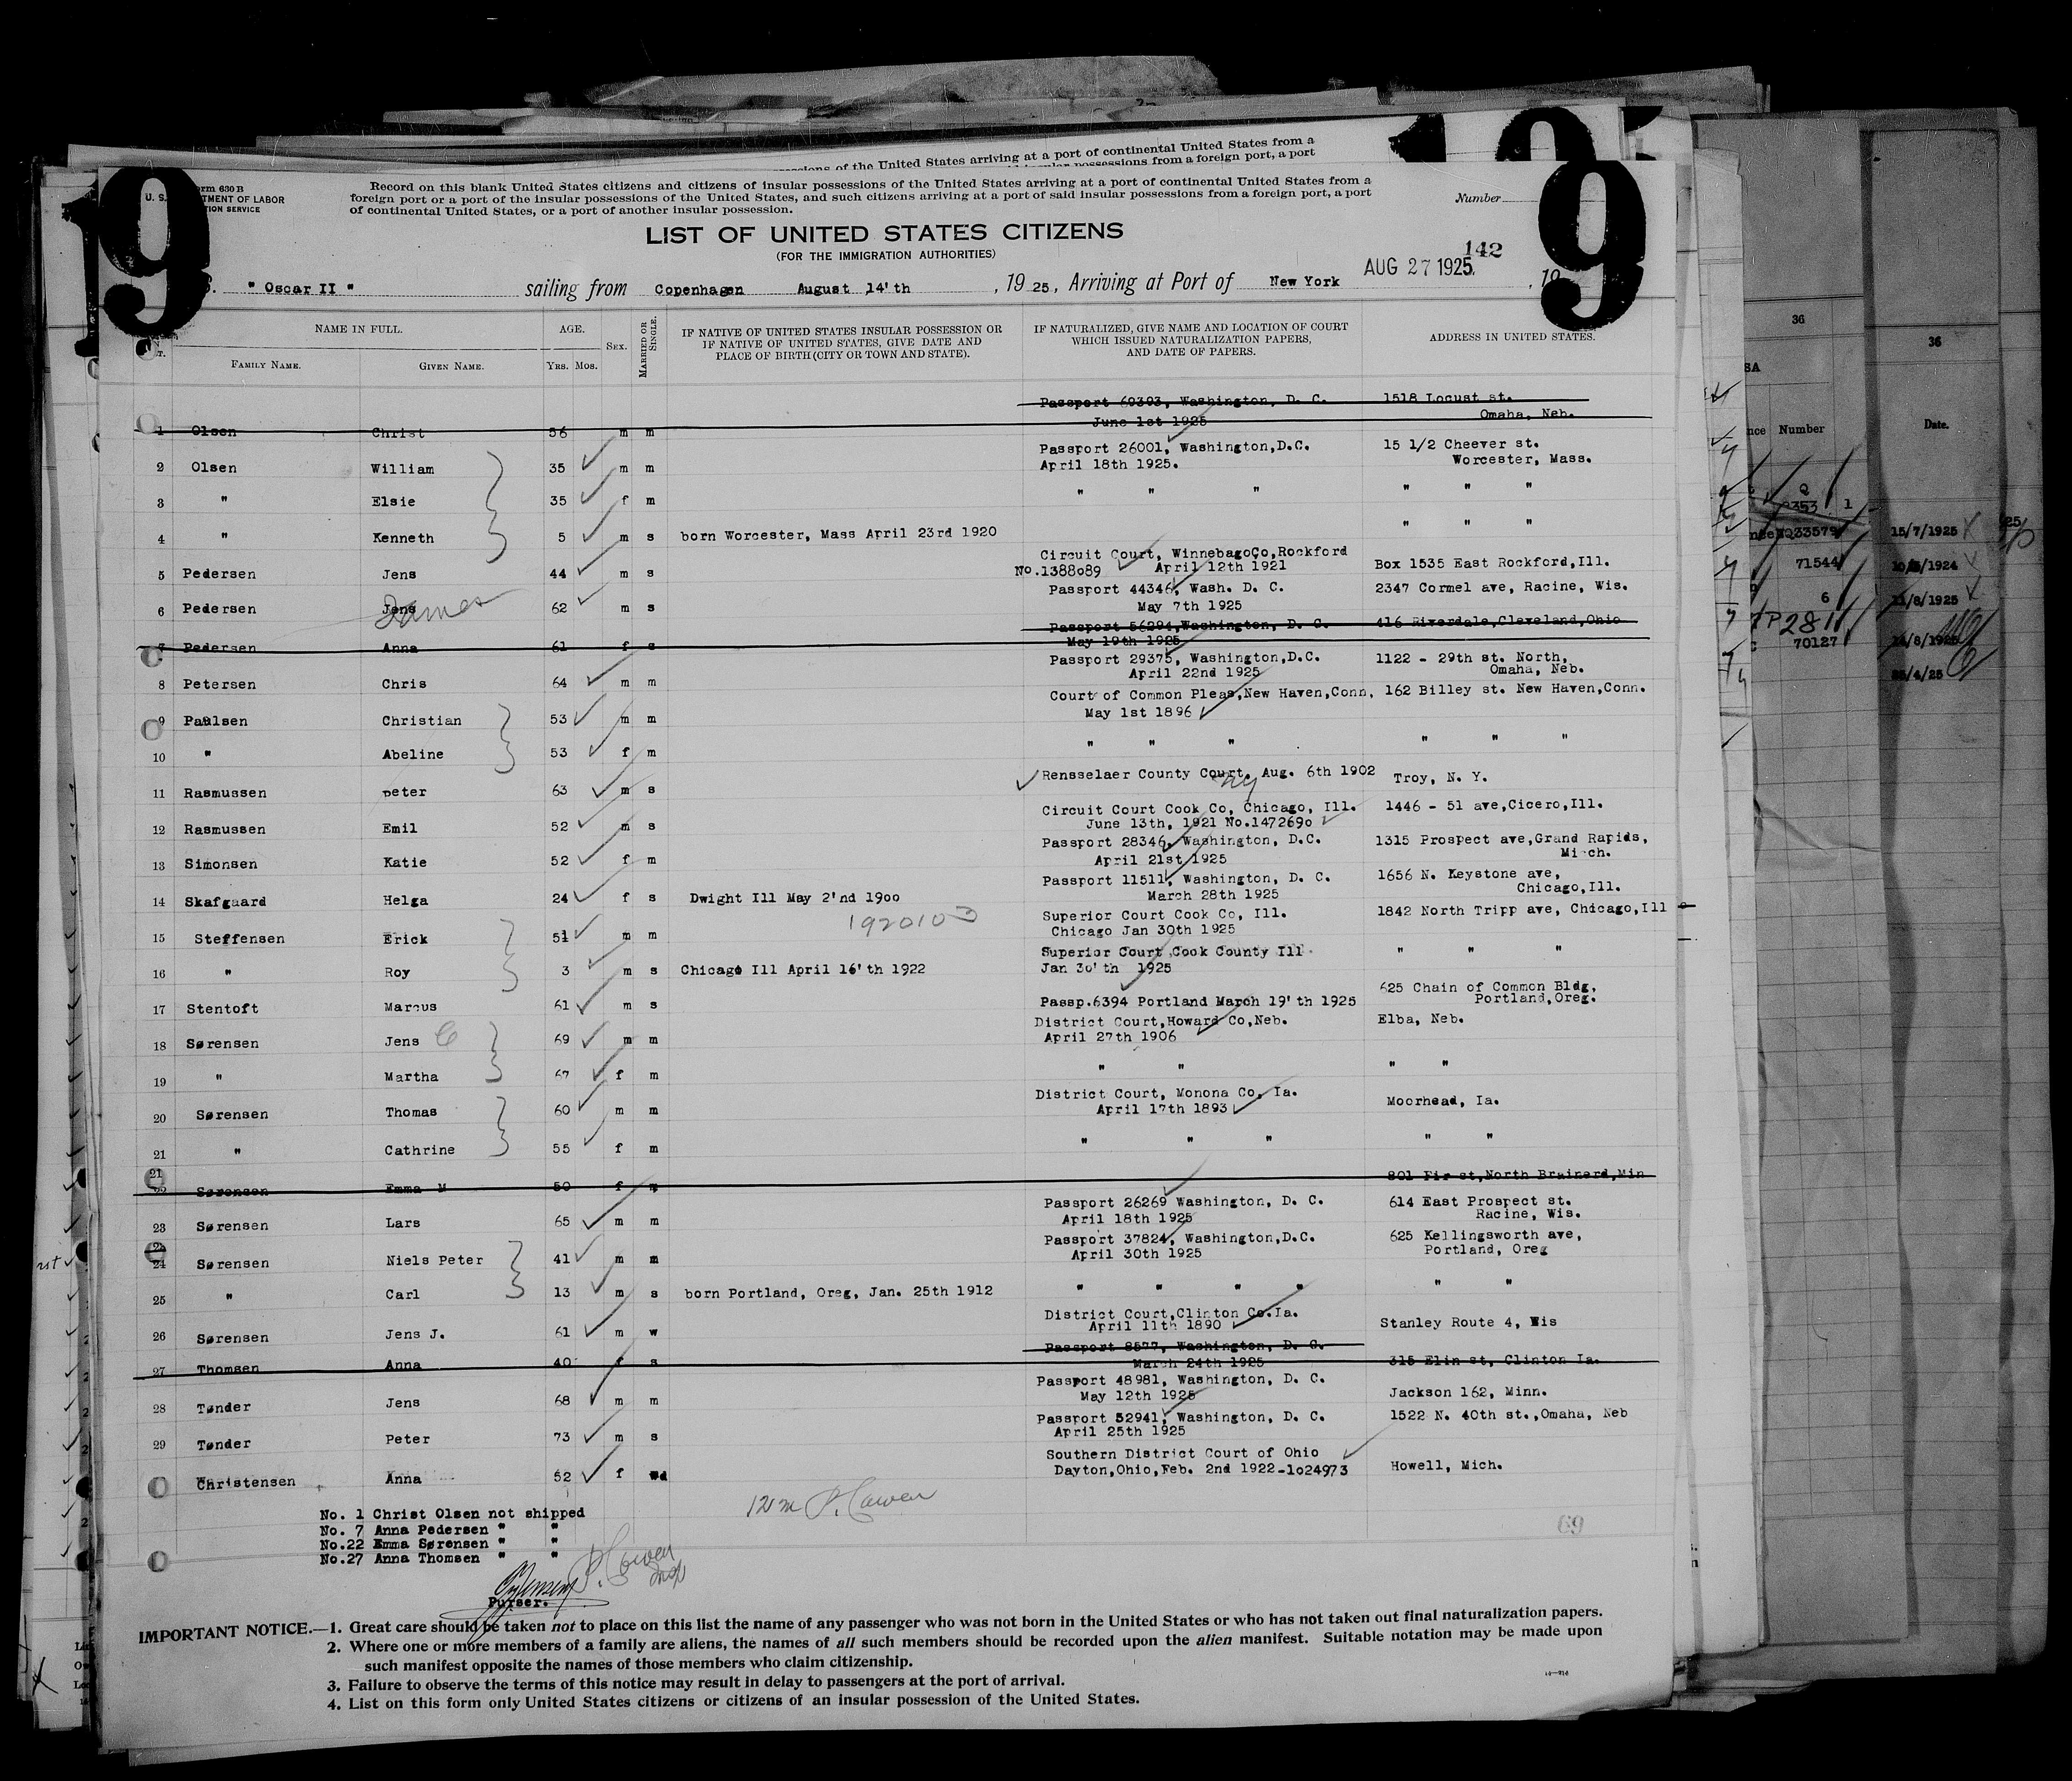 9
10
9
U. S.
Form 630 B
TMENT OF LABOR
TION SERVICE
sessions of the United States arriving at a port of continental United States from a
insular possessions from a foreign port, a port
Record on this blank United States citizens and citizens of insular possessions of the United States arriving at a port of continental United States from a
foreign port or a port of the insular possessions of the United States, and such citizens arriving at a port of said insular possessions from a foreign port, a port
of continental United States, or a port of another insular possession.
Number
LIST OF UNITED STATES CITIZENS
(FOR THE IMMIGRATION AUTHORITIES)
142
S. " Oscar II " sailing from Copenhagen August 14'th , 1925, Arriving at Port of New York AUG 27 1925. , 19
NAME IN FULL. AGE. SEX. MARRIED OR SINGLE. IF NATIVE OF UNITED STATES INSULAR POSSESSION OR IF NATIVE OF UNITED STATES, GIVE DATE AND PLACE OF BIRTH (CITY OR TOWN AND STATE). IF NATURALIZED, GIVE NAME AND LOCATION OF COURT WHICH ISSUED NATURALIZATION PAPERS, AND DATE OF PAPERS. ADDRESS IN UNITED STATES.
FAMILY NAME. GIVEN NAME. YRS. MOS.
Passport 60303, Washington, D. C. 1518 Locust st.
June 1st 1925 Omaha, Neb.
1 Olsen Christ 56 m m
Passport 26001, Washington,D.C. 15 1/2 Cheever st.
2 Olsen William 35 m m April 18th 1925. Worcester, Mass.
3 " Elsie 35 f m " " " " " "
4 " Kenneth 5 m s born Worcester, Mass April 23rd 1920 " " "
Circuit Court, WinnebagoCo,Rockford
5 Pedersen Jens 44 m s No.1388089 April 12th 1921 Box 1535 East Rockford,Ill.
Passport 44346, Wash. D. C. 2347 Cormel ave, Racine, Wis.
6 Pedersen Jens James 62 m s May 7th 1925
Passport 56294,Washington, D. C. 416 Riverdale,Cleveland,Ohio
May 19th 1925
7 Pedersen Anna 61 f s
Passport 29375, Washington,D.C. 1122 - 29th st. North,
April 22nd 1925 Omaha, Neb.
8 Petersen Chris 64 m m
Court of Common Pleas,New Haven,Conn, 162 Billey st. New Haven,Conn.
9 Paulsen Christian 53 m m May 1st 1896
10 " Abeline 53 f m " " " " " "
Rensselaer County Court, Aug. 6th 1902 Troy, N. Y.
NY
11 Rasmussen peter 63 m s
Circuit Court Cook Co, Chicago, Ill. 1446 - 51 ave,Cicero,Ill.
12 Rasmussen Emil 52 m s June 13th, 1921 No.1472690
Passport 28346, Washington, D.C. 1315 Prospect ave,Grand Rapids,
13 Simonsen Katie 52 f m April 21st 1925 Mich.
Passport 11511, Washington, D. C. 1656 N. Keystone ave,
14 Skafgaard Helga 24 f s Dwight Ill May 2'nd 1900 March 28th 1925 Chicago,Ill.
1920103
Superior Court Cook Co, Ill. 1842 North Tripp ave, Chicago,Ill
15 Steffensen Erick 51 m m Chicago Jan 30th 1925
Superior Court Cook County Ill. " " "
16 " Roy 3 m s Chicago Ill April 16'th 1922 Jan 30'th 1925
625 Chain of Common Bldg,
17 Stentoft Marcus 61 m s Passp.6394 Portland March 19'th 1925 Portland,Oreg.
District Court,Howard Co,Neb. Elba, Neb.
18 Sørensen Jens C 69 m m April 27th 1906
19 " Martha 67 f m " " " "
District Court, Monona Co, Ia.
20 Sørensen Thomas 60 m m April 17th 1893 Moorhead, Ia.
21 " Cathrine 55 f m " " " " "
21 801 Fir st,North Brainerd,Min
22 Sørensen Emma M 50 f m
Passport 26269 Washington, D. C. 614 East Prospect st.
23 Sørensen Lars 65 m m April 18th 1925 Racine, Wis.
Passport 37824, Washington,D.C. 625 Kellingsworth ave,
24 Sørensen Niels Peter 41 m m April 30th 1925 Portland, Oreg
25 " Carl 13 m s born Portland, Oreg, Jan. 25th 1912 " " " " " "
District Court,Clinton Co.Ia.
26 Sørensen Jens J. 61 m w April 11th 1890 Stanley Route 4, Wis
Passport 8577, Washington, D. C.
27 Thomsen Anna 40 f s March 24th 1925 315 Elin st, Clinton Ia.
Passport 48981, Washington, D. C.
28 Tønder Jens 68 m m May 12th 1925 Jackson 162, Minn.
Passport 52941, Washington, D. C. 1522 N. 40th st.,Omaha, Neb
29 Tønder Peter 73 m s April 25th 1925
Southern District Court of Ohio
Christensen Anna 52 f wd Dayton,Ohio,Feb. 2nd 1922-1024973 Howell, Mich.
No. 1 Christ Olsen not shipped
No. 7 Anna Pedersen " "
No.22 Emma Sørensen " "
No.27 Anna Thomsen " "
69
Purser.
IMPORTANT NOTICE.—1. Great care should be taken not to place on this list the name of any passenger who was not born in the United States or who has not taken out final naturalization papers.
2. Where one or more members of a family are aliens, the names of all such members should be recorded upon the alien manifest. Suitable notation may be made upon
such manifest opposite the names of those members who claim citizenship.
3. Failure to observe the terms of this notice may result in delay to passengers at the port of arrival.
4. List on this form only United States citizens or citizens of an insular possession of the United States.
36
36
Number
Date.
15/7/1925
71544
6
P2811
70127